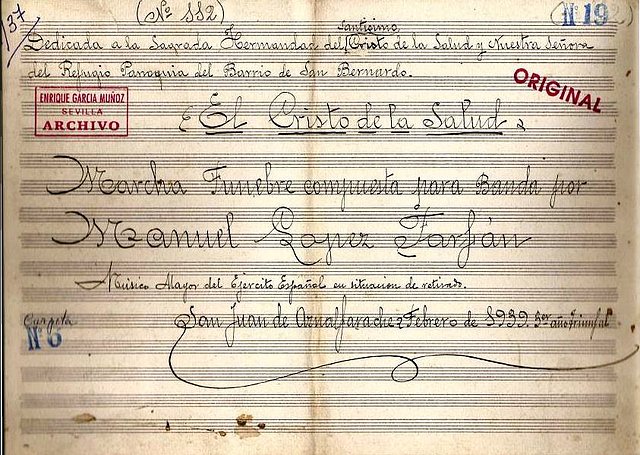 137
(Nº 332)
Nº 19
Santísimo
Dedicada a la Sagrada Hermandad del Cristo de la Salud y Nuestra Señora
del Refugio Parroquia del Barrio de San Bernardo.
ORIGINAL
ENRIQUE GARCIA MUÑOZ
SEVILLA
ARCHIVO
El Cristo de la Salud
Marcha Funebre compuesta para Banda por
Manuel Lopez Farfán
Músico Mayor del Ejercito Español en situacion de retirado.
Carpeta
Nº 6
San Juan de Aznalfarache Febrero de 1939. 3er año Triunfal